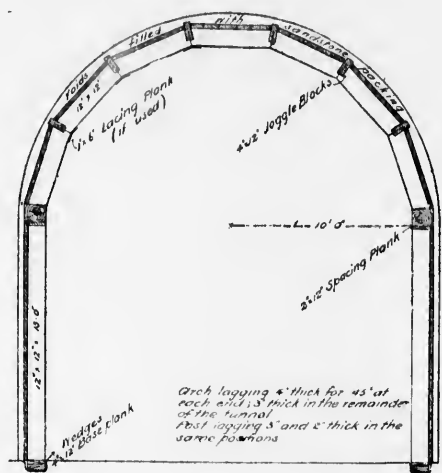 Voids filled with sandstone packing
12" x 12"
1"x 6" Lacing Plank
(if used)
4"x12" Joggle Blocks
10' 0"
2"x12" Spacing Plank
12" x 12" x 13'-0"
Wedges
4"x 12" Base plank
Arch lagging 4" thick for 45' at
each end; 3" thick in the remainder
of the tunnel
Post lagging 3" and 2" thick in the
same positions